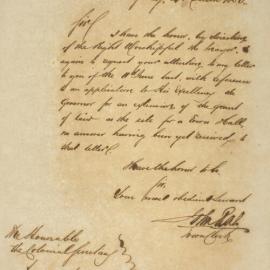 Sir
I have the honor, by direction
of the Right Worshipful the Mayor, to
again to request your attention to my letter
to you of the 11th June last, with reference
to an application to His Excellency the
Governor for an extension of the grant
of land as the site for a Town Hall,
no answer having been yet received to
that letter.
I have the honor to be
Sir
Your most obedient Servant
Town Clerk
The Honorable
The Colonial Secretary